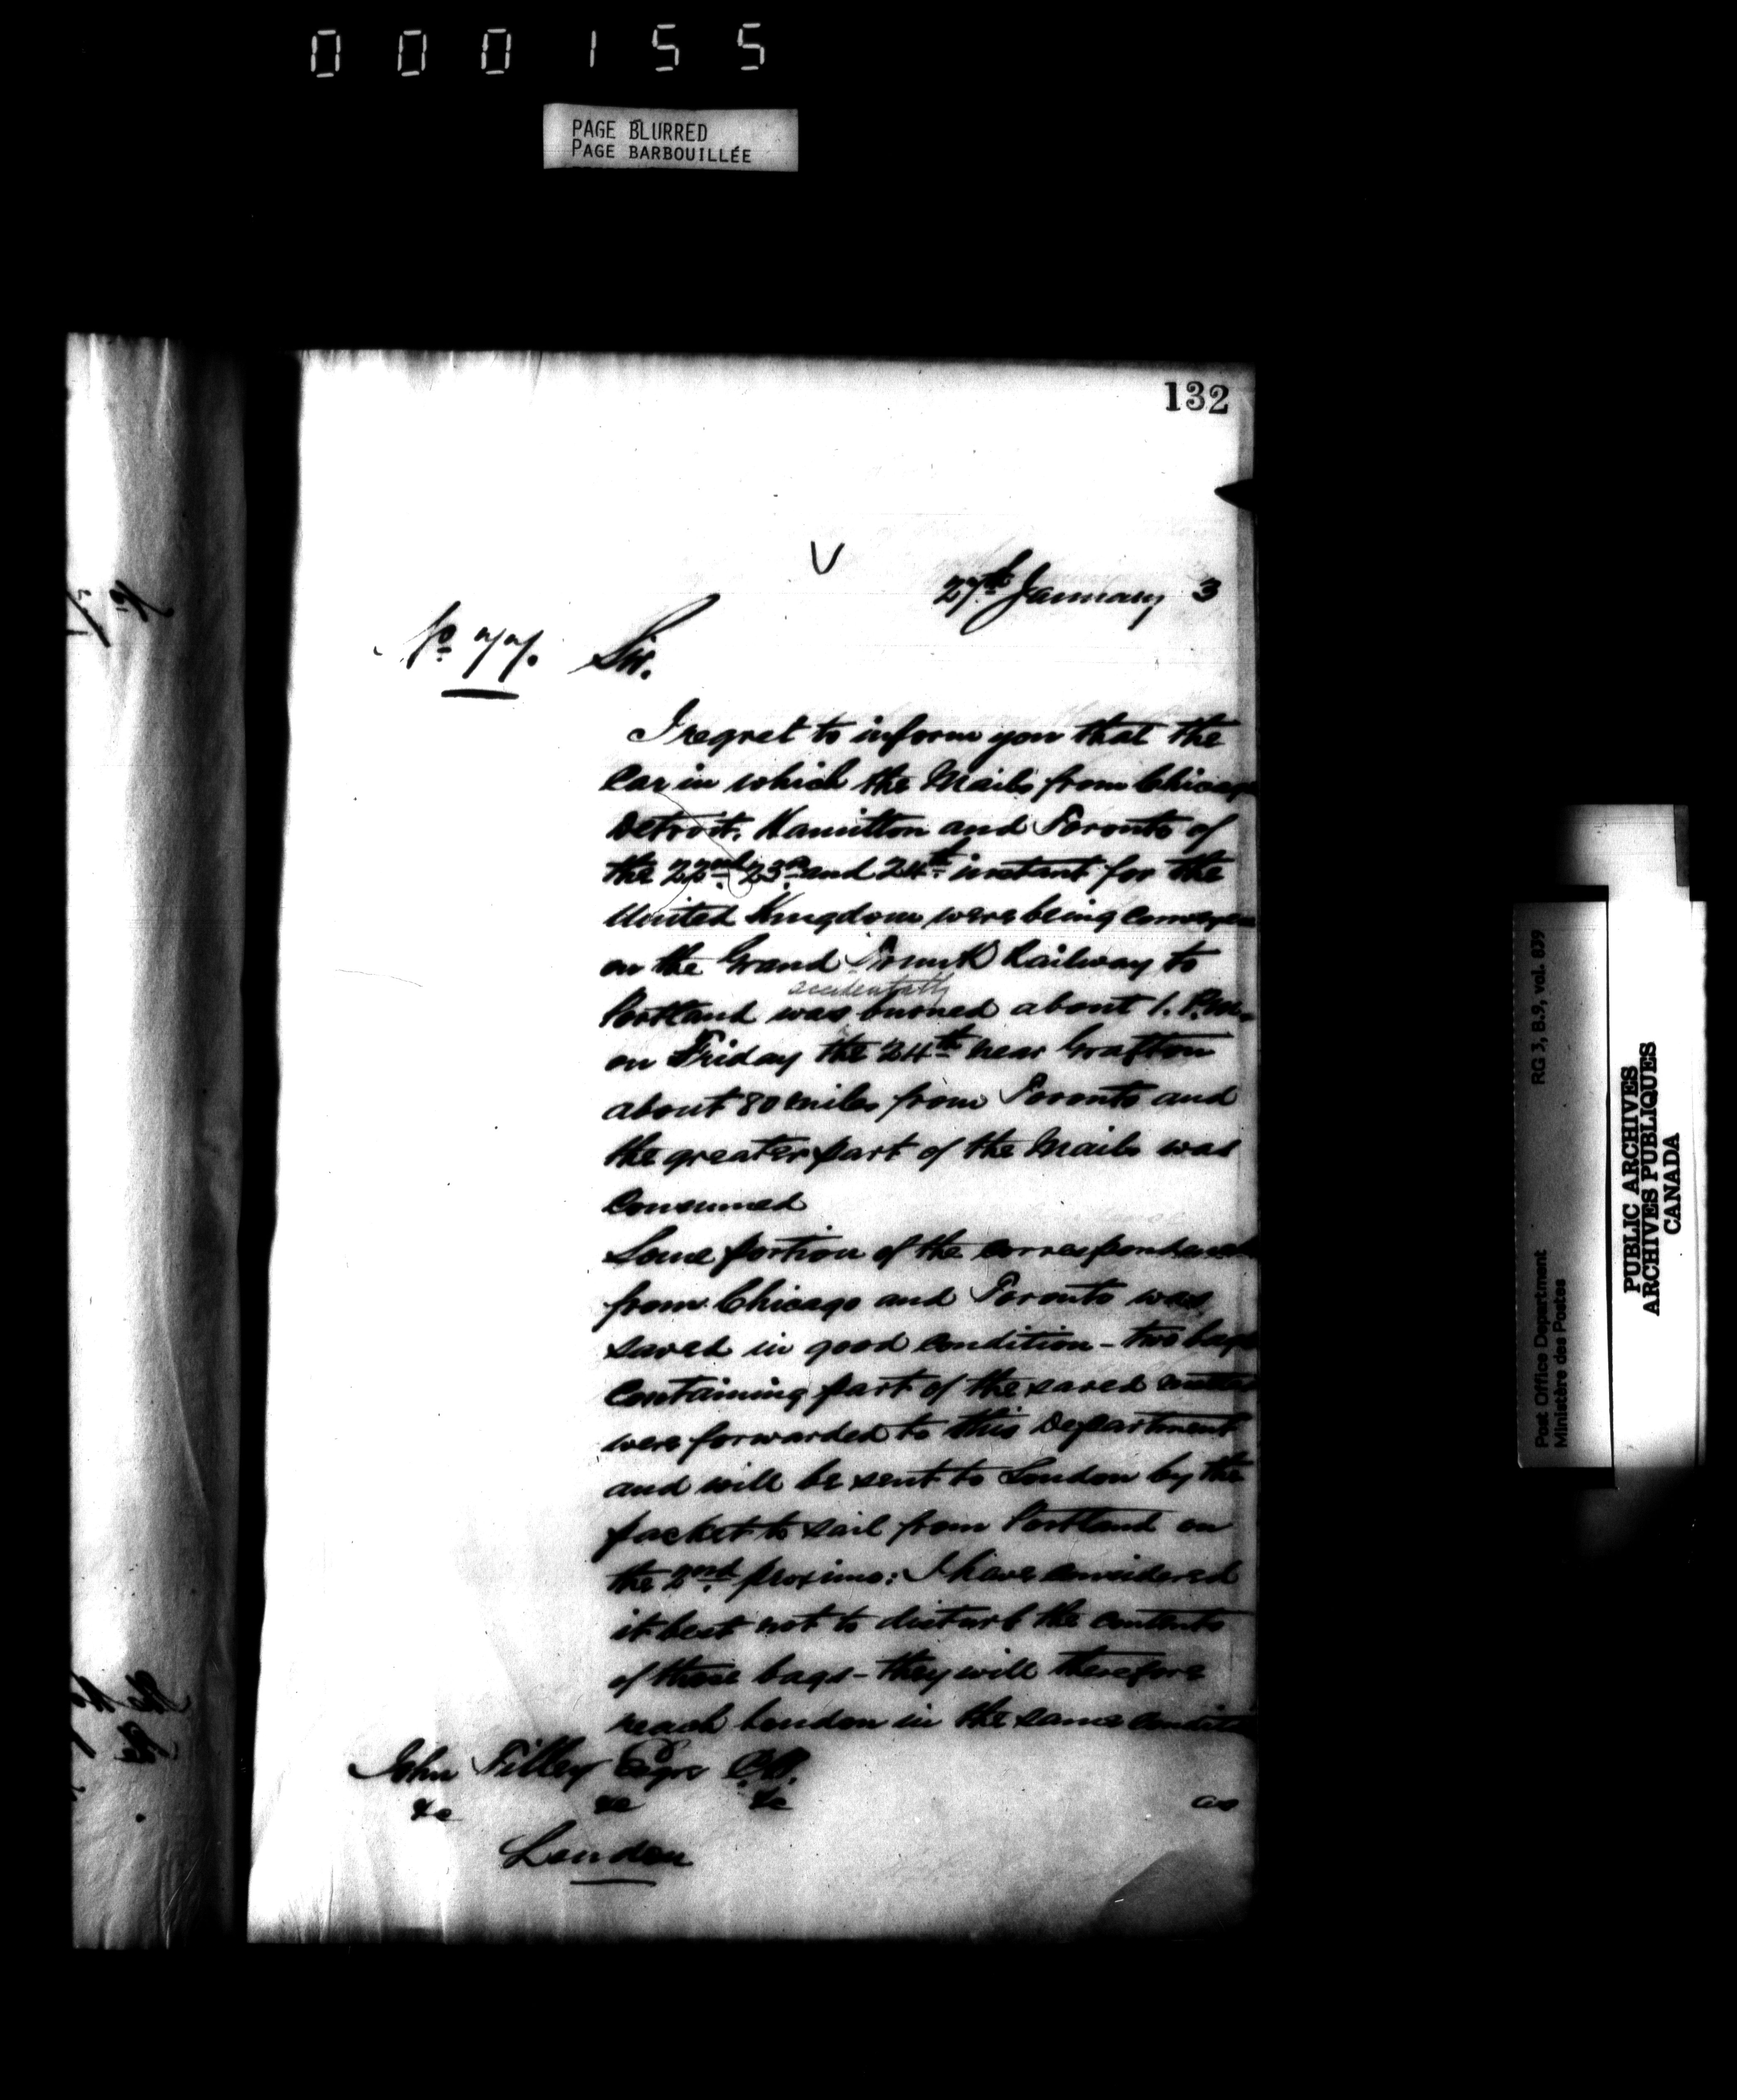 000155
PAGE BLURRED
PAGE BARBOUILLÉE
132
27th January 3
No 77. Sir.
I regret to inform you that the
Car in which the Mails from Chicago
Detroit, Hamilton and Toronto of
the 22nd 23d and 24th instant for the
United Kingdom were being conveyed
on the Grand Trunk Railway to
accidentally
Portland was burned about 1. P.M.
on Friday the 24th near Grafton
about 80 miles from Toronto and
the greater part of the Mails was
consumed
Some portion of the correspondence
from Chicago and Toronto was
saved in good condition - two bags
containing part of the saved matter
were forwarded to this Department
and will be sent to London by the
packet to sail from Portland on
the 2nd proximo: I have considered
it best not to disturb the contents
of these bags - they will therefore
reach London in the same condition
as
John Tilley Esqre C.B.
&c &c &c
London
Post Office Department RG 3, B.9, vol. 839
Ministère des Postes
PUBLIC ARCHIVES
ARCHIVES PUBLIQUES
CANADA